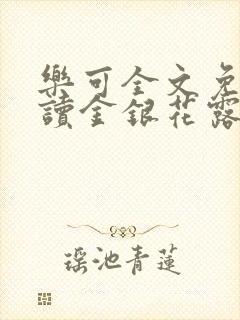 樂可全文免
讀金銀花露
瑶池青蓮